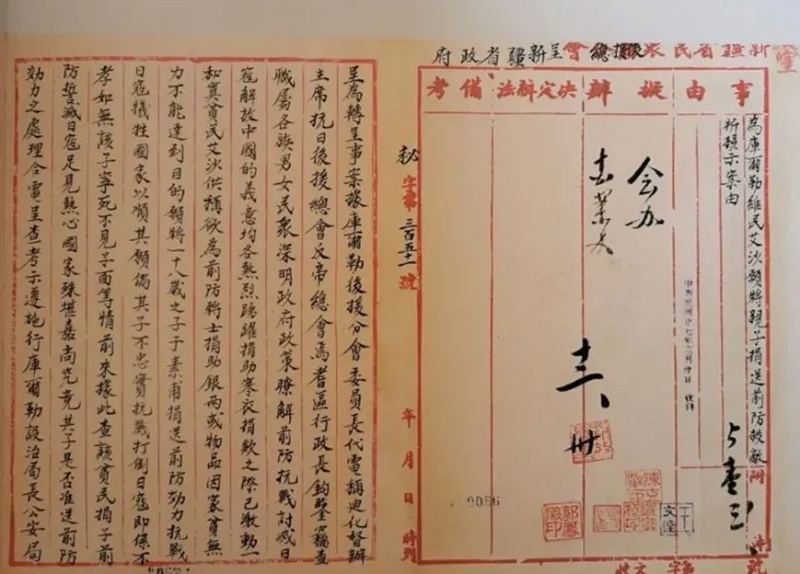 新疆省民衆後援總會呈新疆省政府
事由
擬辦
決定辦法
備考
為庫爾勒維民艾沙願將親子捐送前防殺敵
祈核示案由
附
會办
十六
卅
9086
文達
秘字第三百五十一號
年月日時列
呈為轉呈事案據庫爾勒後援分會委員長代電稱迪化督辦
主席抗日後援總會反帝總會焉耆區行政長鈞鑒竊查
職屬各族男女民眾深明政府政策瞭解前防抗戰討滅日
寇解放中國的義意均各熱烈踴躍捐助寒衣捐欵之際已激動一
和寘貧民艾沙供稱欲為前防將士捐助銀兩或物品因家貧無
力不能達到目的願將一十八歲之子于素甫捐送前防効力抗戰
日寇犧牲國家以順其願倘其子不忠實抗戰打倒日寇即係不
孝如無該子寧死不見子面等情前來據此查該貧民捐子前
防誓滅日寇足見熱心國家殊堪嘉尚究竟其子是否准送前防
効力之處理合電呈查考示遵施行庫爾勒設治局長公安局